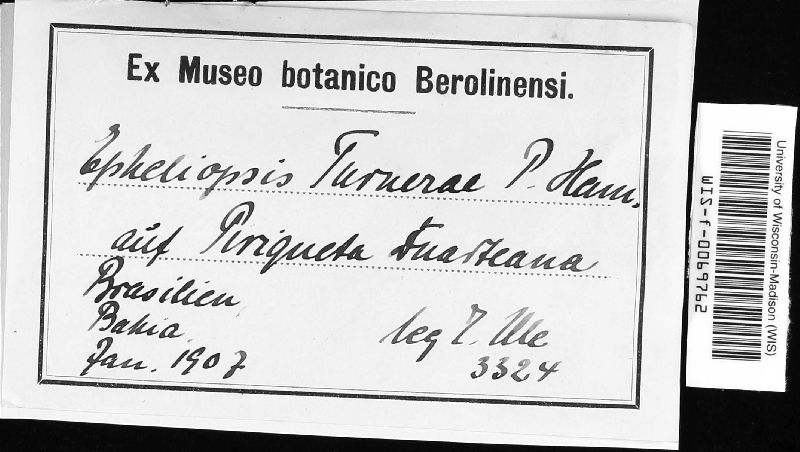 Ex Museo botanico Berolinensi.
Epheliopsis Turnerae P. Henn.
auf Piriqueta Duarteana
Brasilien
Bahia
Jan. 1907
leg E. Ule
3324
University of Wisconsin-Madison (WIS)
WIS-f-0069762